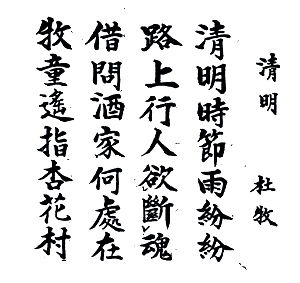 清明
杜牧
清明時節雨紛紛
路上行人欲斷魂
借問酒家何處在
牧童遙指杏花村